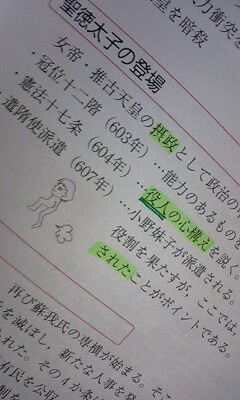 皇を暗殺
力衝突を
聖徳太子の登場
女帝・推古天皇の摂政として政治の
・冠位十二階（603年）…能力のあるものを
・憲法十七条（604年）…役人の心構えを説く。
・遣隋使派遣（607年）…小野妹子が派遣される。
役割を果たすが、ここでは、
されたことがポイントである。
再び蘇我氏の専横が始まる。そこ
を滅ぼし、新たな人事を発
された。その４か条
有民を公収
制を